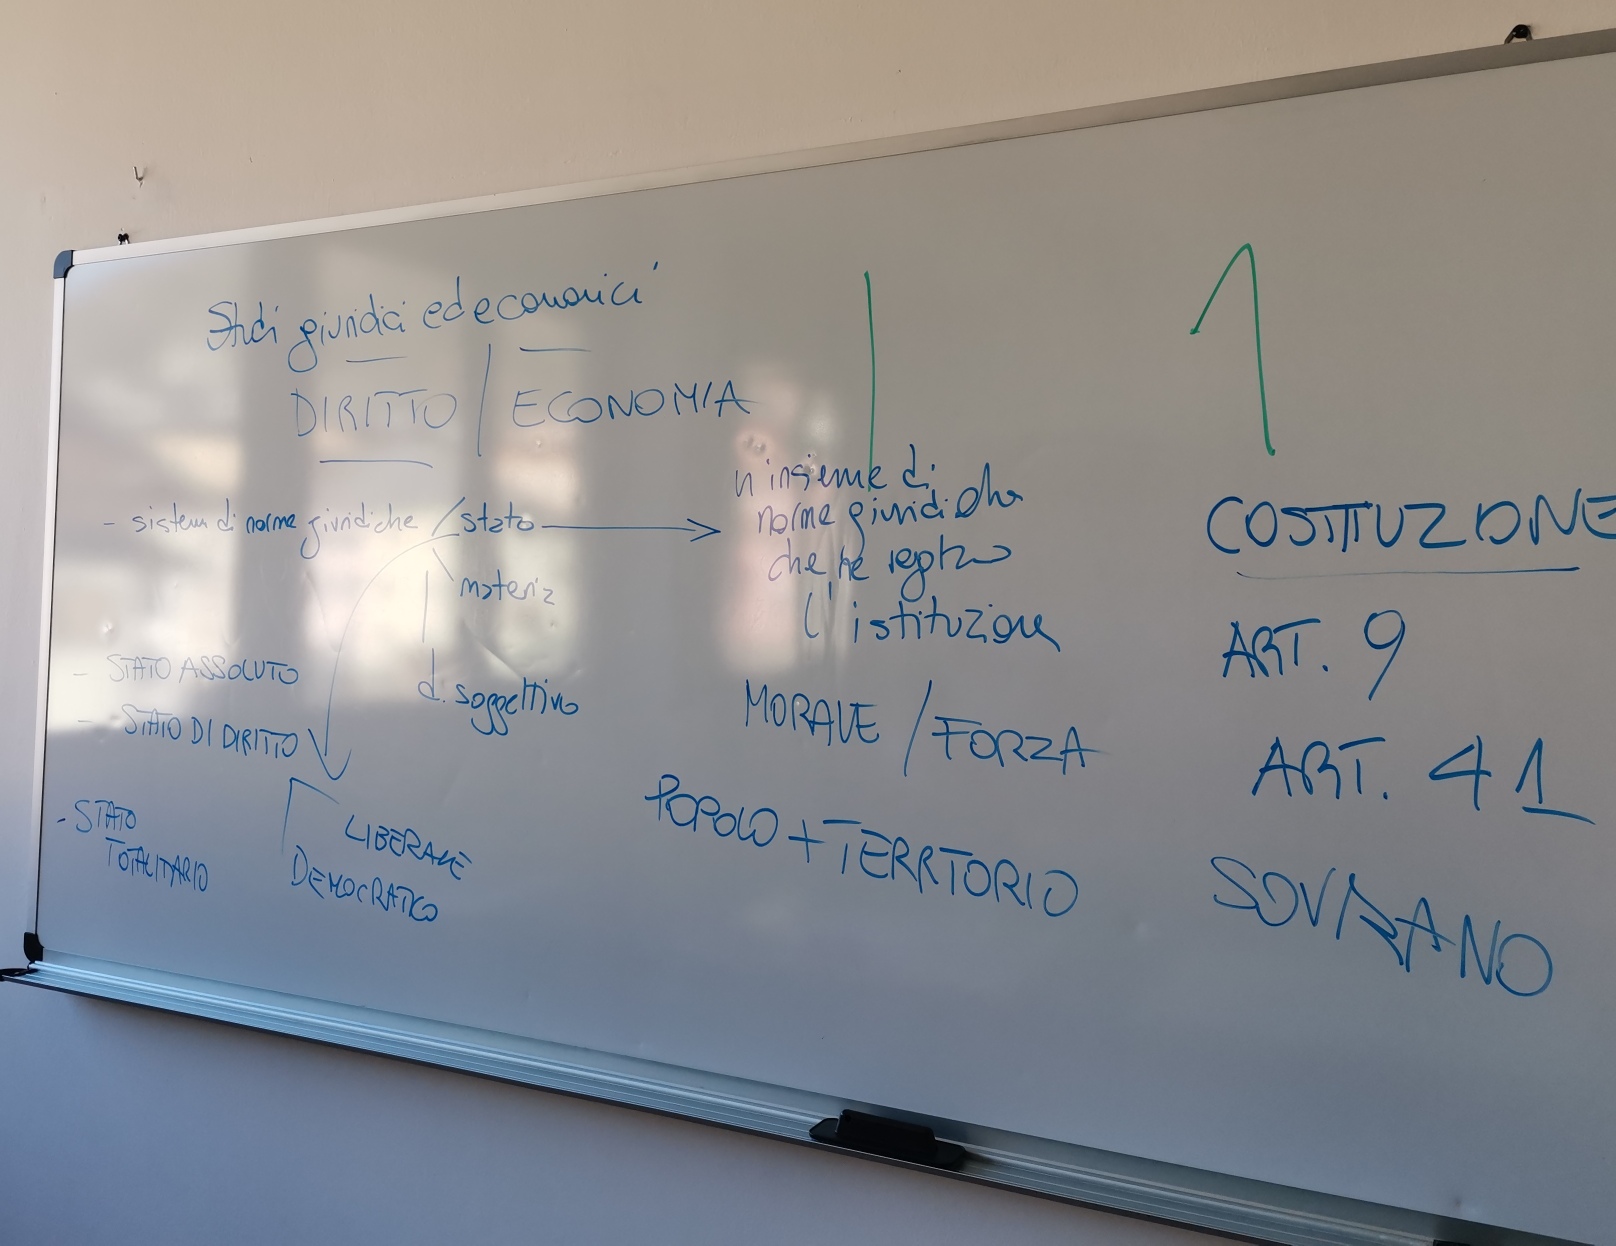 Studi giuridici ed economici
DIRITTO / ECONOMIA
- sistema di norme giuridiche / stato
materia
d. soggettivo
- STATO ASSOLUTO
- STATO DI DIRITTO
- STATO
TOTALITARIO
LIBERALE
DEMOCRATICO
n insieme di
norme giuridiche
che ne regolano
l'istituzione
MORALE / FORZA
POPOLO + TERRTORIO
1
COSTITUZIONE
ART. 9
ART. 41
SOVRANO